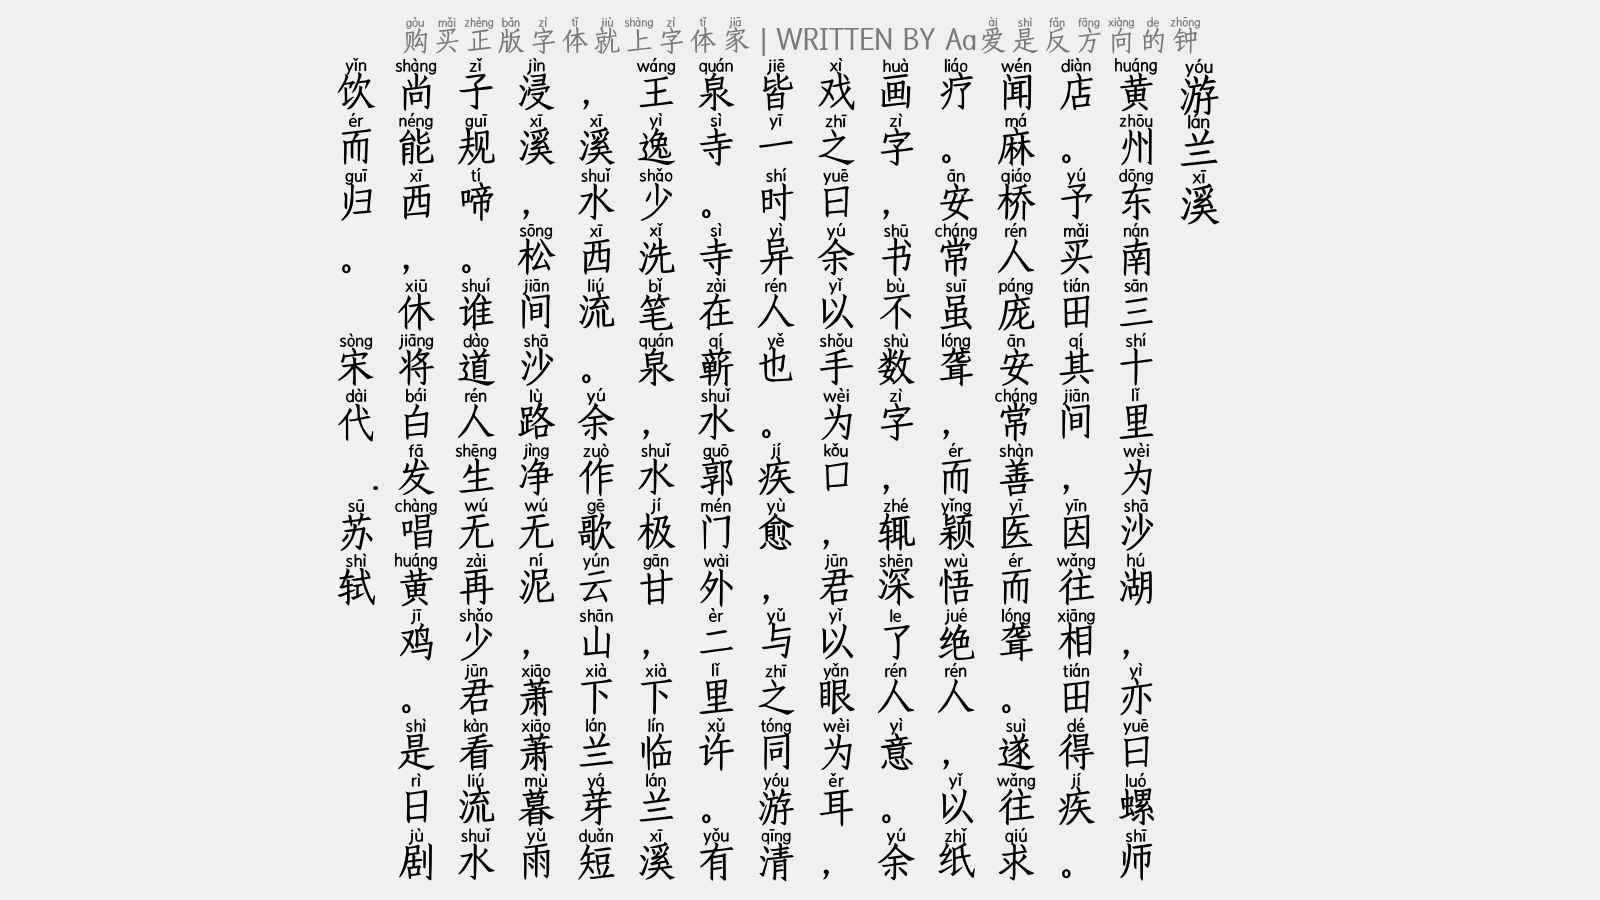 购买正版字体就上字体家 | WRITTEN BY Aa爱是反方向的钟
游兰溪
黄州东南三十里为沙湖，亦曰螺师
店。予买田其间，因往相田得疾。
闻麻桥人庞安常善医而聋。遂往求
疗。安常虽聋，而颖悟绝人，以纸
画字，书不数字，辄深了人意。余
戏之曰余以手为口，君以眼为耳，
皆一时异人也。疾愈，与之同游清
泉寺。寺在蕲水郭门外二里许。有
王逸少洗笔泉，水极甘，下临兰溪
，溪水西流。余作歌云山下兰芽短
浸溪，松间沙路净无泥，萧萧暮雨
子规啼。谁道人生无再少君看流水
尚能西，休将白发唱黄鸡。是日剧
饮而归。 宋代.苏轼